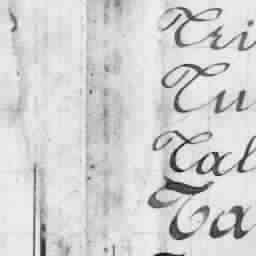 Tri
Tu
Tal
Ta